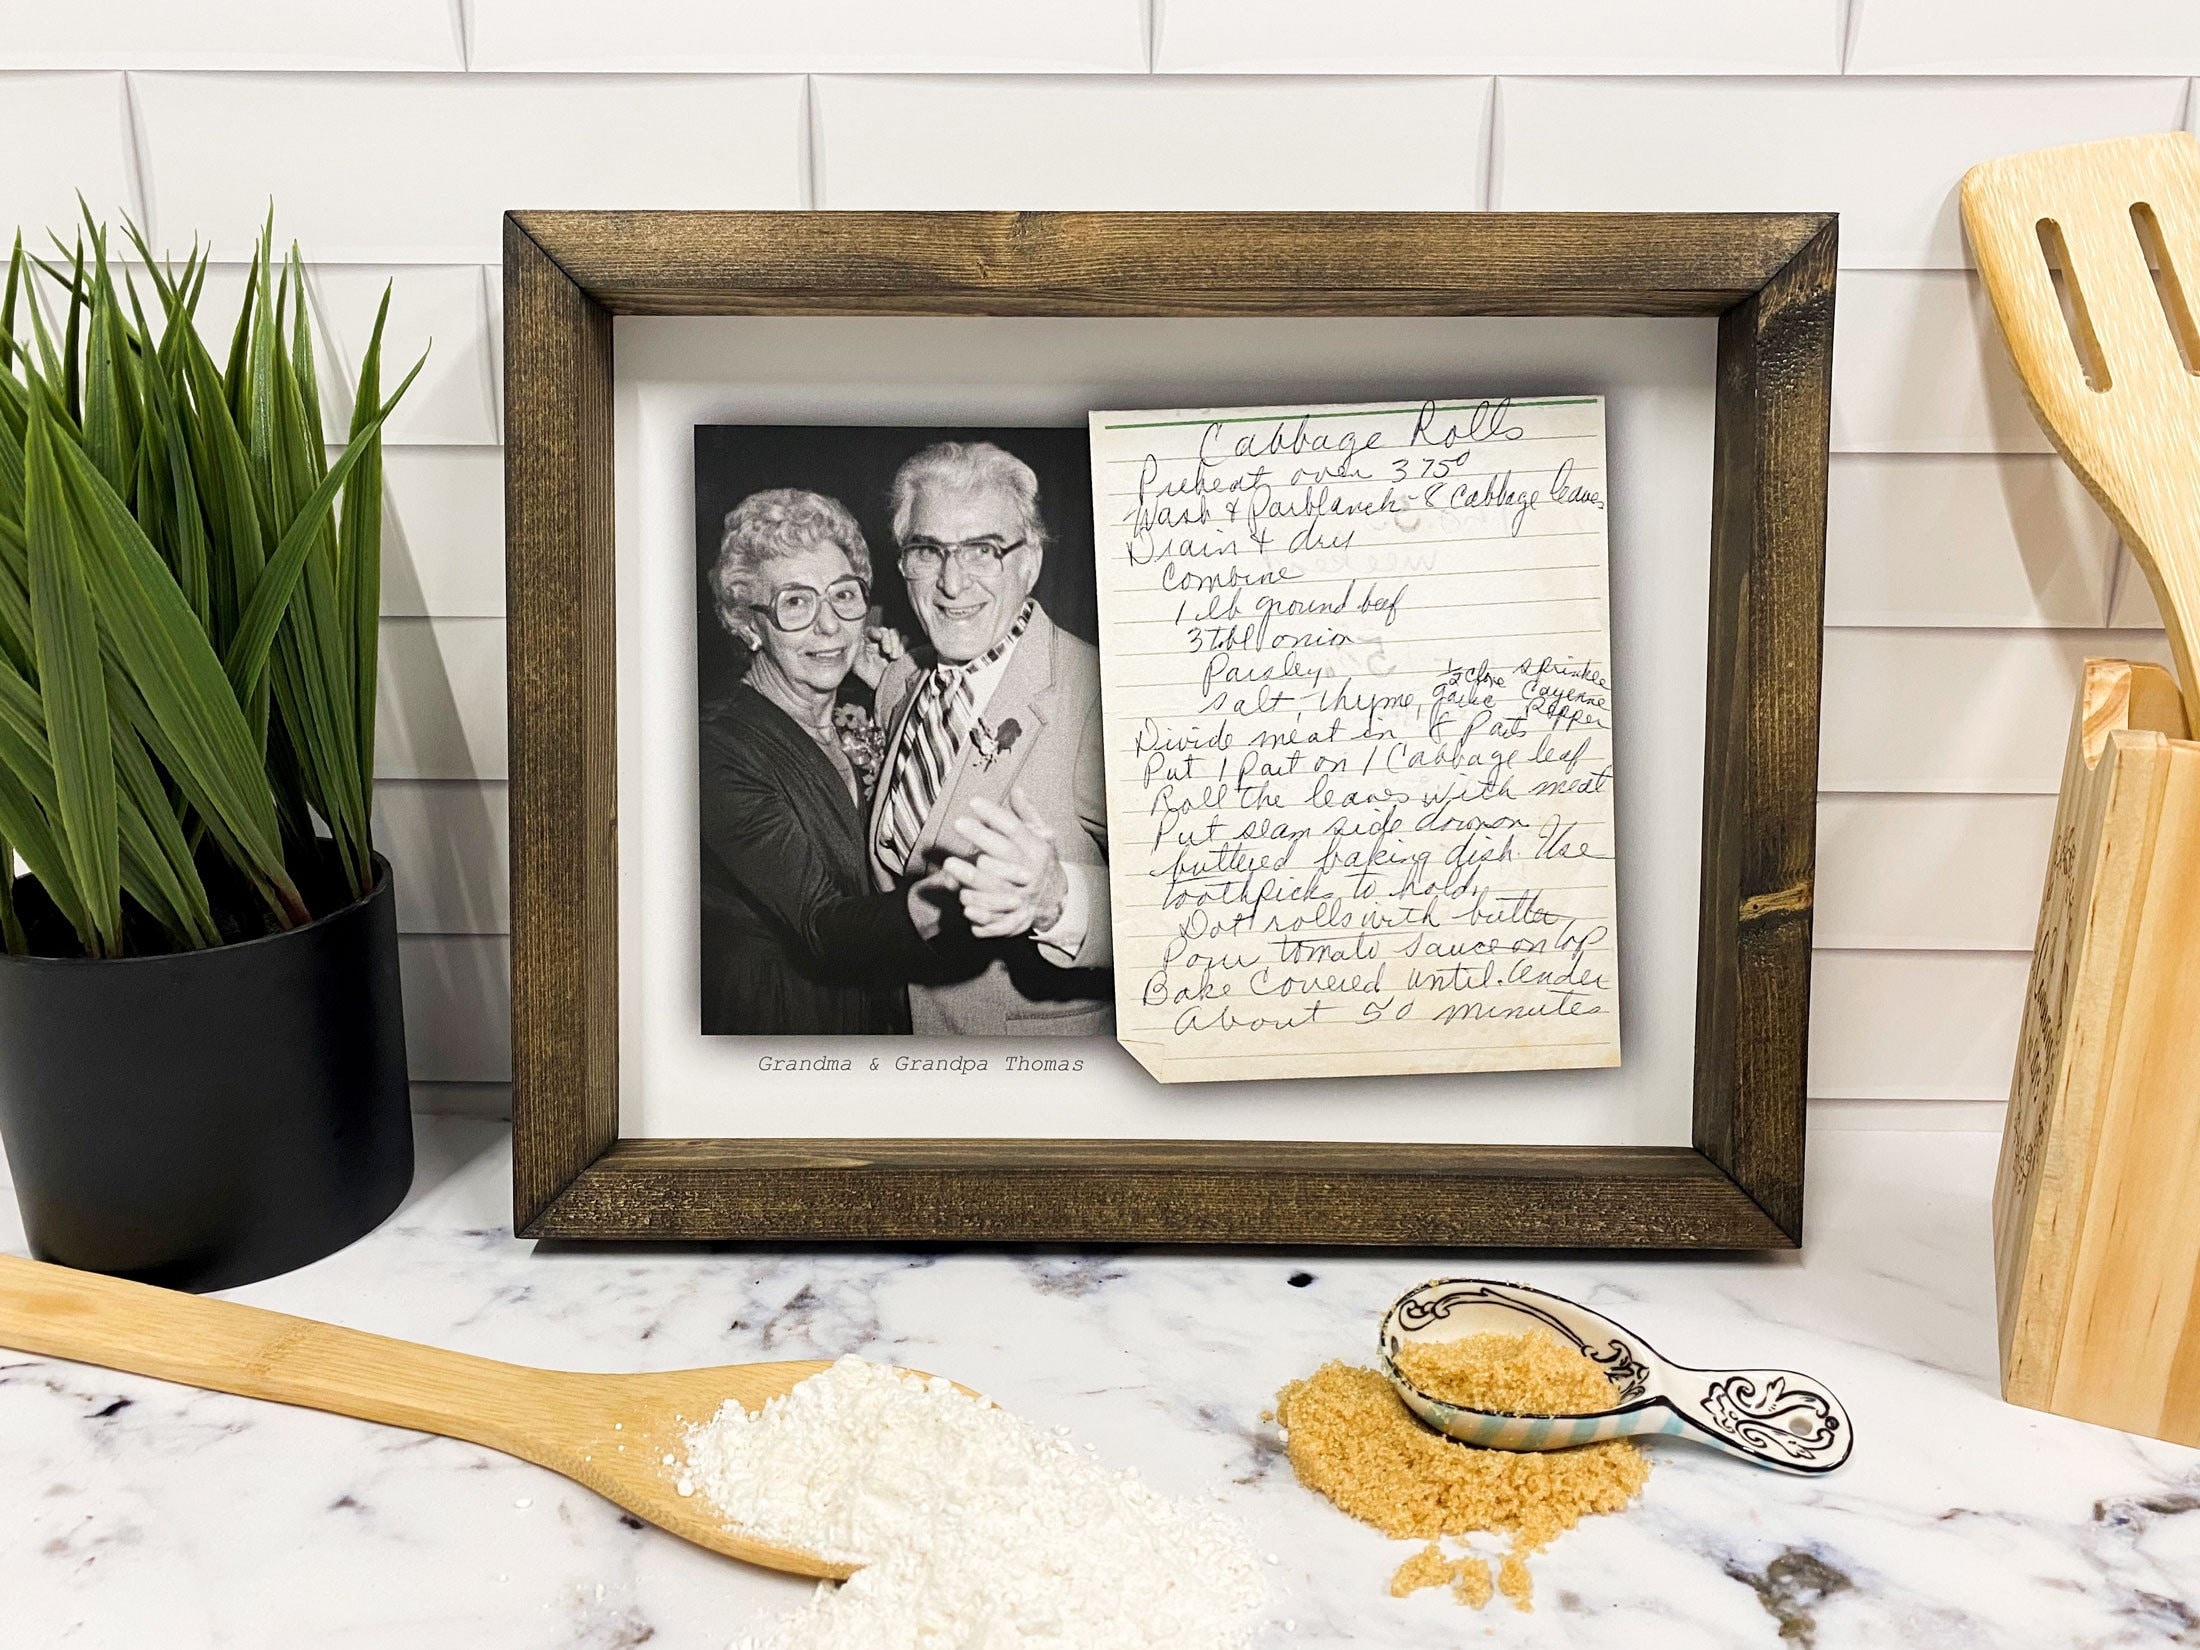 Cabbage Rolls
Preheat oven 375°
Wash & Parblanch - 8 Cabbage leaves
Drain & dry
Combine
1 lb ground beef
3 tbl onion
Parsley
salt, thyme, 1/2 clove garlic sprinkle Cayenne Pepper
Divide meat in 8 Parts
Put 1 Part on 1 Cabbage leaf
Roll the leaves with meat
Put seam side down on
buttered baking dish. Use
toothpicks to hold.
Dot rolls with butter,
Pour tomato sauce on top
Bake Covered until tender
About 50 minutes
Grandma & Grandpa Thomas